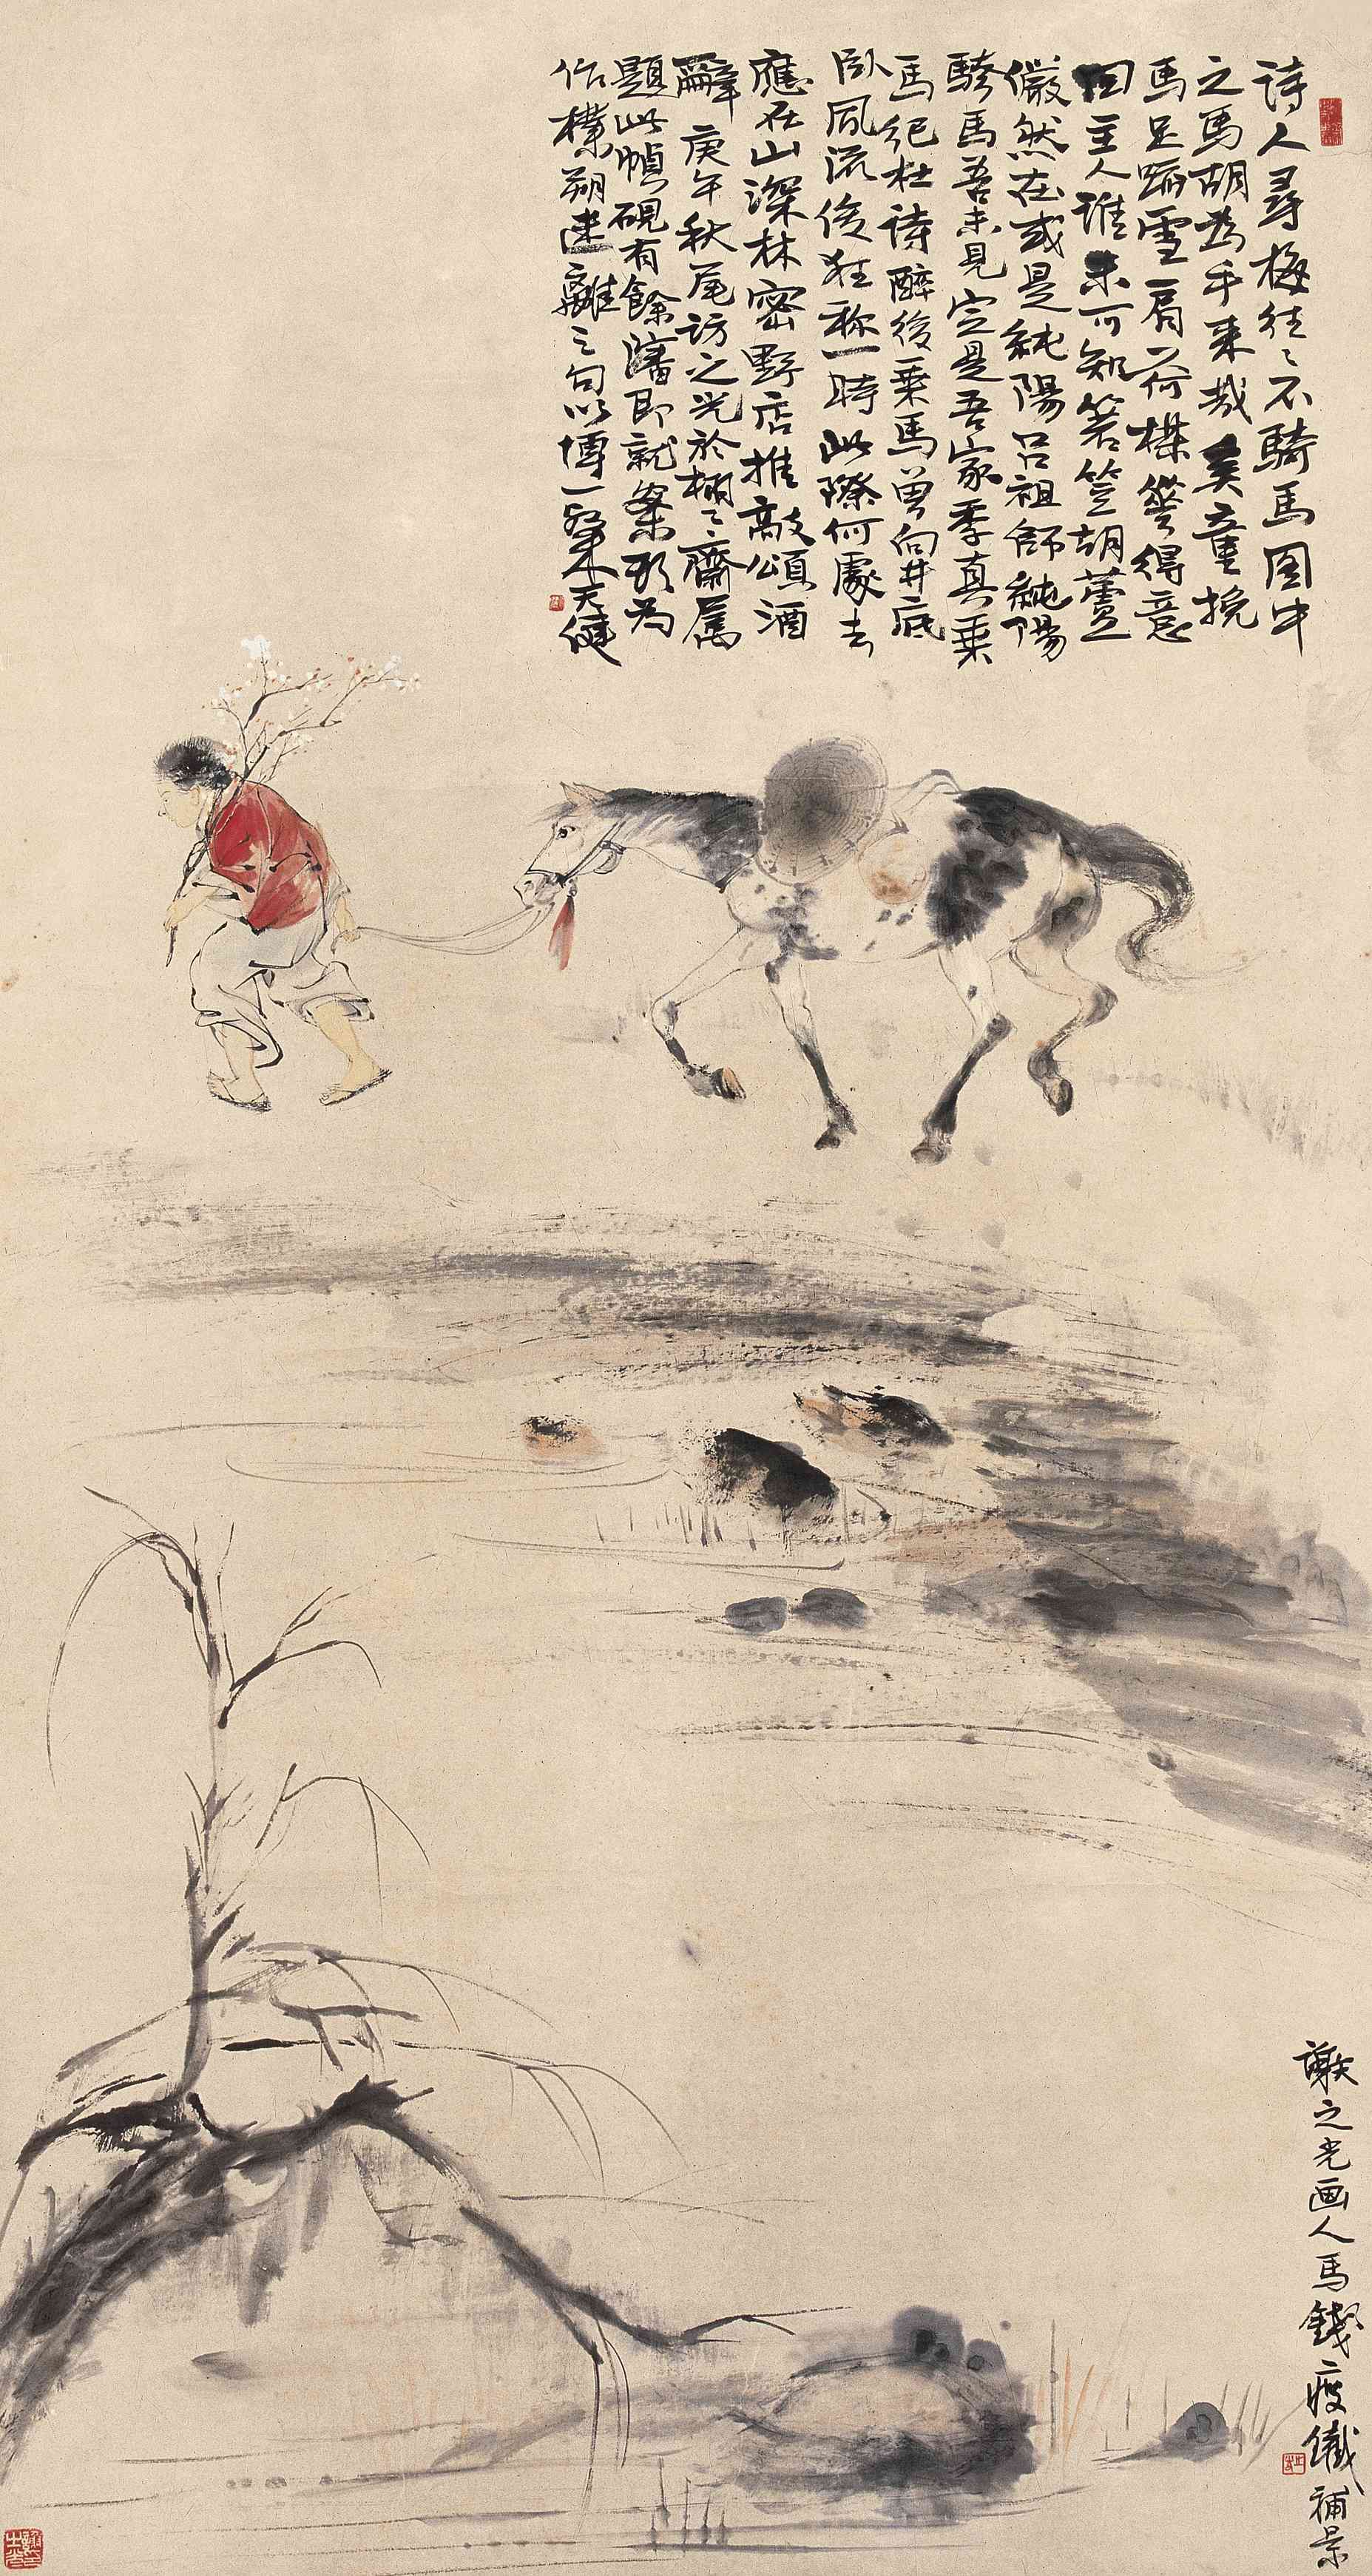 詩人尋梅往々不騎馬圖中
之馬胡為乎来哉奚童挽
馬足蹈雪一肩荷楪夢得意
回主人誰未可知箬笠胡蘆
儼然在或是純陽呂祖師純陽
騎馬吾未見定是吾家季真乗
馬纪杜詩醉後乗馬曾向井底
臥風流後狂称一時此際何處去
應在山深林密野店推敲頌酒
辭庚午秋尾訪之光於栩々齋属
題此幀硯有餘瀋即就案頭为
作樸朔迷離之句以博一粲天健
謝之光画人馬錢瘦鐵補景